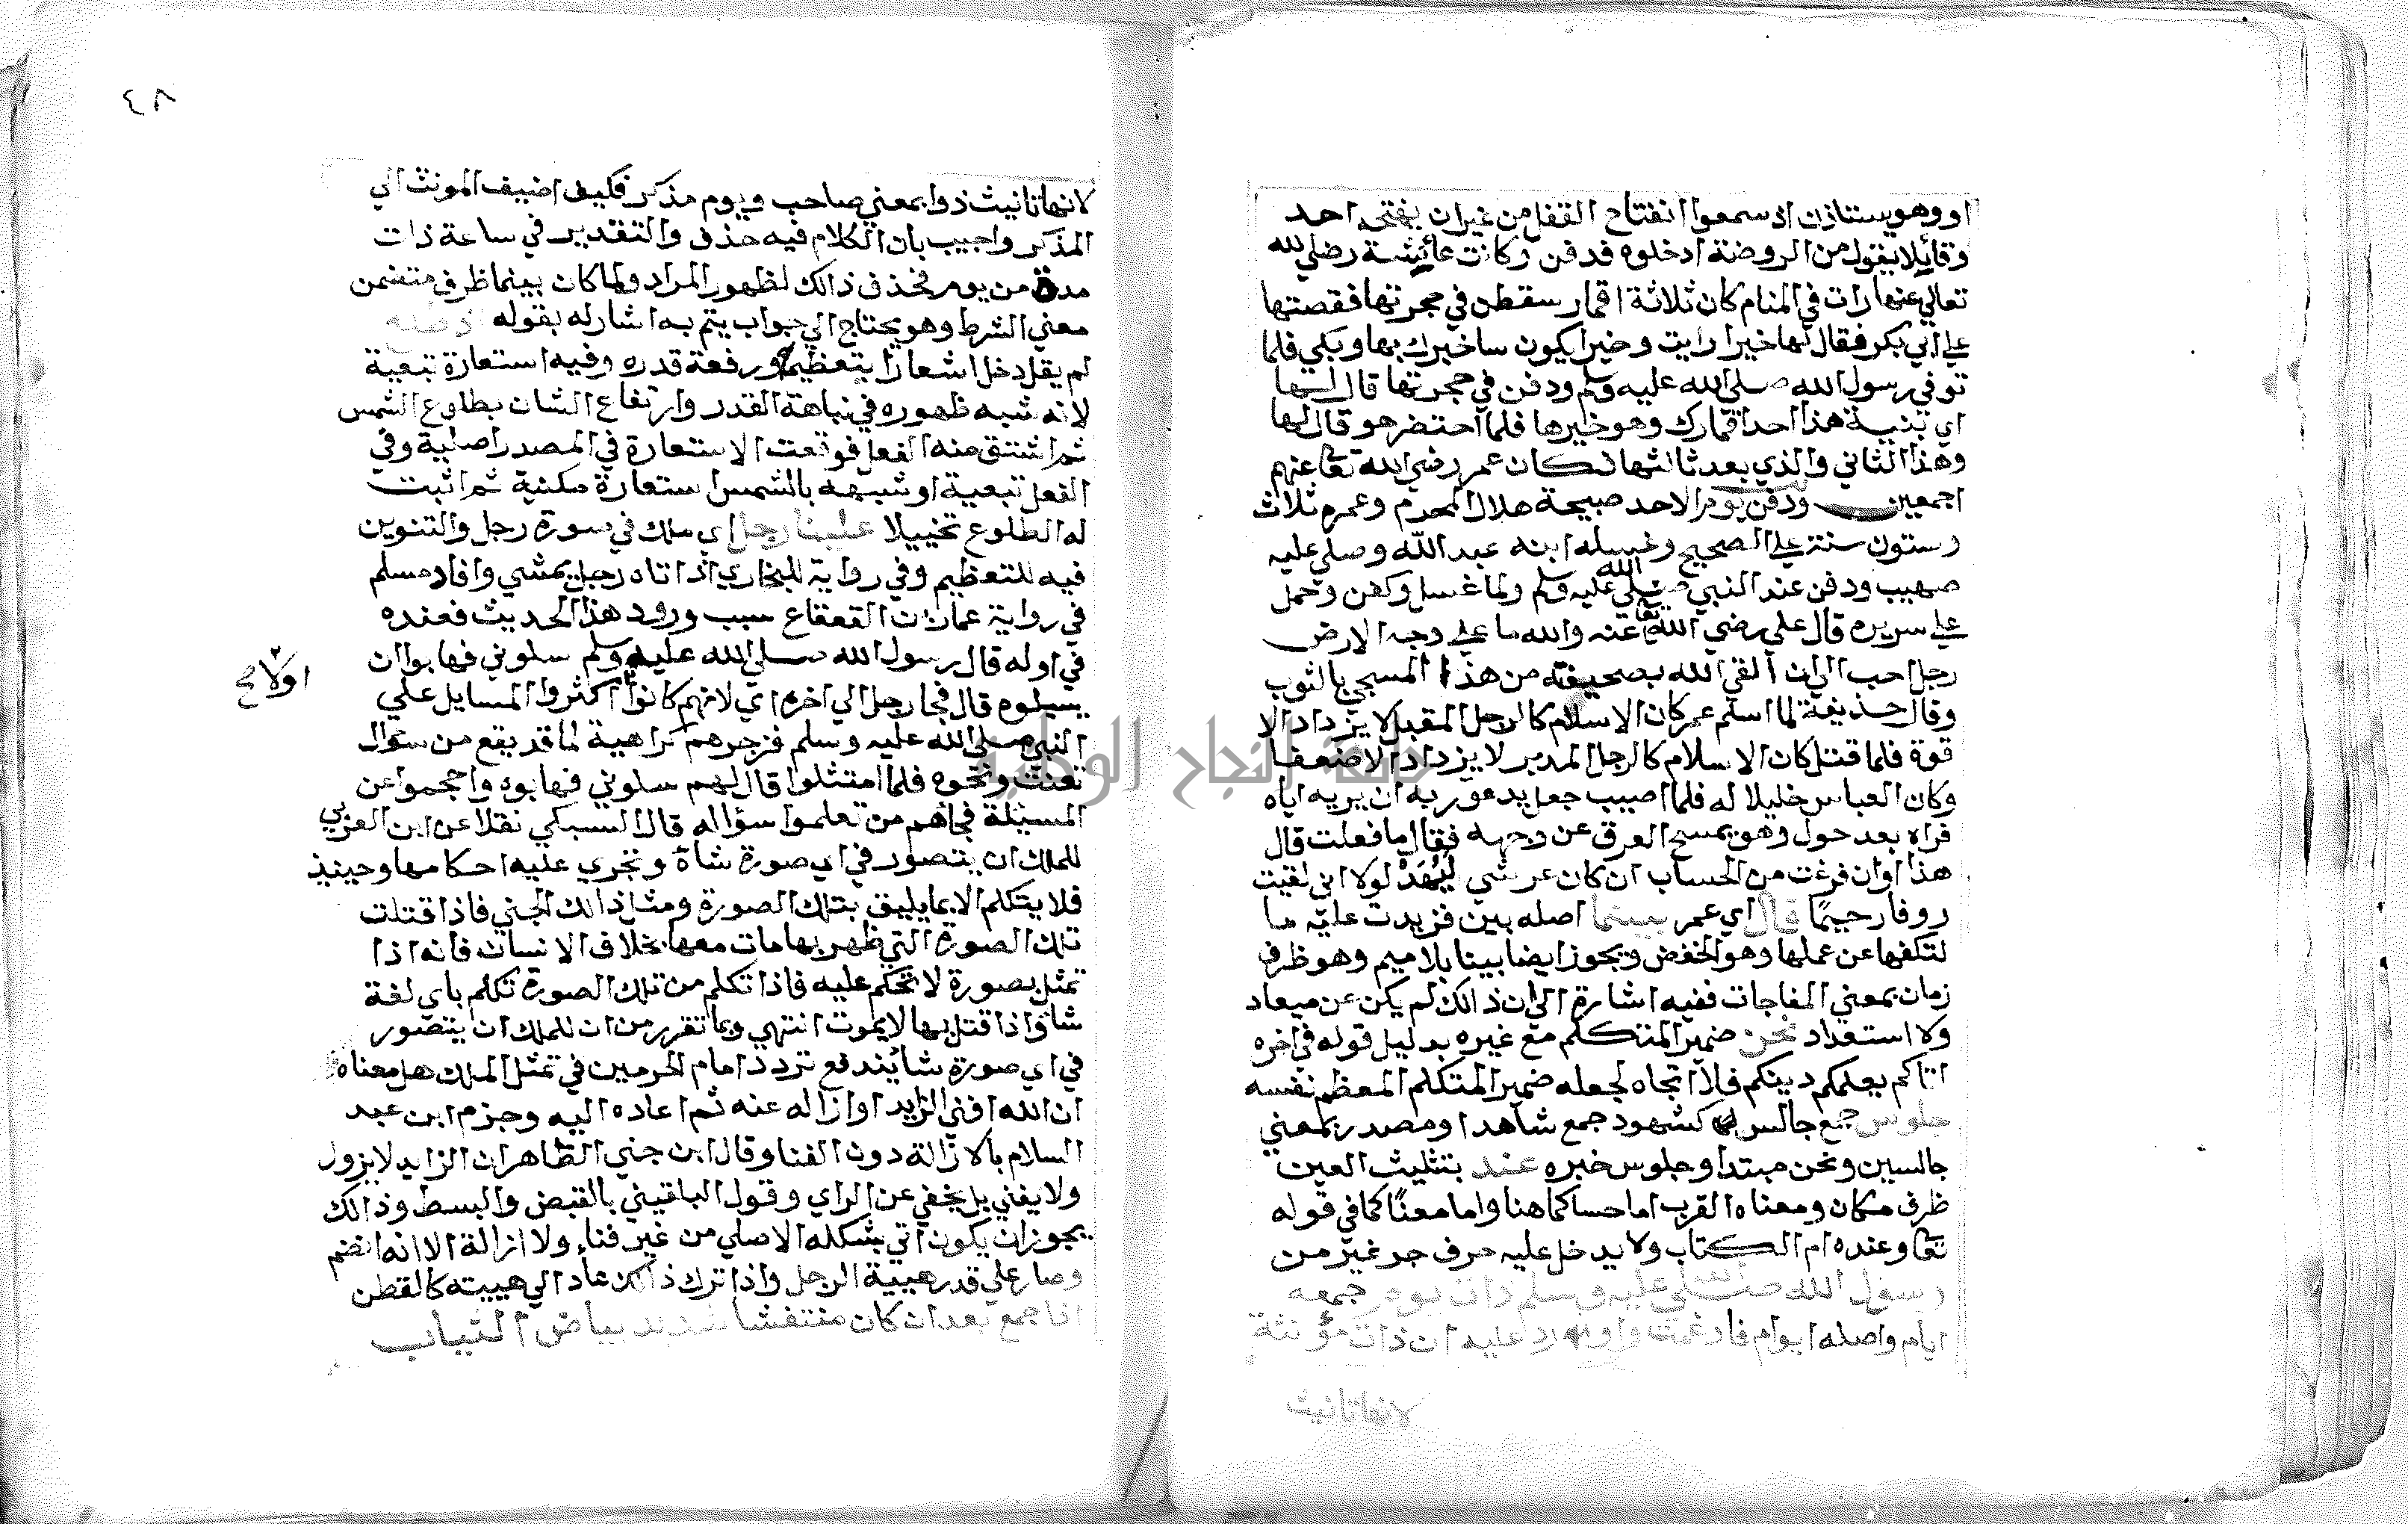 او وهو يستاذن اذ سمعوا انفتاح القفل من غيران يفتحه احد
وقائلا يقول من الروضة ادخلوه فدفن وكانت عائشة رضي لله
تعالي عنها رات في المنام كان ثلاثة اقمار سقطن في حجرتها فقصتها
علي ابي بكر فقال لها خيرا رايت وخيرا يكون ساخبرك بها وبكي فلما
توفي رسول الله صلي الله عليه وسلم ودفن في حجرتها قال لها
اي بنية هذا احد اقمارك وهو خيرها فلما احتضر هو قال لها
وهذا الثاني والذي بعد ثالثها فكان عمر رضي الله تعا عنهم
اجمعين ودفن يوم الاحد صبيحة هلال المحرم وعمره ثلاث
وستون سنة علي الصحيح وغسله ابنه عبد الله وصلي عليه
صهيب ودفن عند النبي صلي الله عليه وسلم ولما غسل وكفن وحمل
علي سريره قال علي رضي الله تعا عنه والله ما علي وجه الارض
رجل احب الي ان القي الله بصحيفته من هذا المسجي بالثوب
وقال حذيفة لما اسلم عمر كان الاسلام كالرجل المقبل لا يزداد الا
قوة فلما قتل كان الاسلام كالرجل المدبر لا يزداد الا ضعفا
وكان العباس خليلا له فلما اصيب جعل يدعو ربه ان يريه اياه
فراه بعد حول وهو يمسح العرق عن وجهه فقال ما فعلت قال
هذا اوان فرغت من الحساب ان كان عرشي ليهد لولا اني لقيت
روفا رحيما قال اي عمر بينما اصله بين فزيدت عليه ما
لتكفها عن عملها وهو الخفض ويجوز ايضا بينا بلا ميم وهو ظرف
زمان بمعني المفاجات ففيه اشارة الي ان ذالك لم يكن عن ميعاد
ولا استعداد نحن ضمير المتكلم مع غيره بدليل قوله في اخره
اتاكم يعلمكم دينكم فلا اتجاه لجعله ضمير المتكلم المعظم نفسه
جلوس جمع جالس كشهود جمع شاهد او مصدر بمعني
جالسين ونحن مبتدا وجلوس خبره عند بتثليث العين
ظرف مكان ومعناه القرب اما حسا كما هنا واما معنا كما في قوله
تعا وعنده ام الكتاب ولا يدخل عليه حرف جر غير من
رسول الله صلي الله عليه وسلم ذات يوم جمعه
ايام واصله ايوام فادغمت واورد عليه ان ذات مؤنثة
لانها تانيث
٤٨
لانها تانيث ذوا بمعني صاحب ويوم مذكر فكيف اضيف المونث الي
المذكر واجيب بان الكلام فيه حذف والتقدير في ساعة ذات
مدة من يوم فحذف ذالك لظهور المراد ولما كان بينما ظرف متضمن
معني الشرط وهو يحتاج الي جواب يتم به اشار له بقوله
لم يقل دخل اشعارا بتعظيمه ورفعة قدره وفيه استعارة تبعية
لانه شبه ظهوره في نباهة القدر وارتفاع الشان بطلوع الشمس
ثم اشتق منه الفعل فوقعت الاستعارة في المصدر اصلية وفي
الفعل تبعية او شبهه بالشمس استعارة مكنية ثم اثبت
له الطلوع تخييلا علينا رجل اي ملك في صورة رجل والتنوين
فيه للتعظيم وفي رواية للبخاري اذ اتاه رجل يمشي وافاد مسلم
في رواية عمارة بن القعقاع سبب ورود هذا الحديث فعنده
في اوله قال رسول الله صلي الله عليه وسلم سلوني فهابوا ان
يسيلوه قال فجا رجل الي اخره اي لانهم كانوا اكثروا المسايل علي
اولا صح
النبي صلي الله عليه وسلم فزجرهم كراهية لما قد يقع من سوال
تعنت ونحوه فلما امتثلوا قال لهم سلوني فهابوه واحجموا عن
المسيلة فجاهم من تعلموا سؤاله قال السبكي نقلا عن ابن العربي
للملك ان يتصور في اي صورة شاة وتجري عليه احكامها وحينيذ
فلا يتكلم الا بما يليق بتلك الصورة ومثل ذالك الجني فاذا قتلت
تلك الصورة التي ظهر بها مات معها بخلاف الانسان فانه اذا
تمثل بصورة لا تحكم عليه فاذا تكلم من تلك الصورة تكلم باي لغة
شا واذا قتل بها لا يموت انتهي وبما تقرر من ان للملك ان يتصور
في اي صورة شا يندفع تردد امام الحرمين في تمثل الملك هل معناه
ان الله افني الزايد او ازاله عنه ثم اعاده اليه وجزم ابن عبد
السلام بالازالة دون الفنا وقال ابن جني الظاهر ان الزايد لا يزول
ولا يفني بل يخفي عن الراي وقول الباقيني بالقبض والبسط وذالك
يجوز ان يكون اتي بشكله الاصلي من غير فناء ولا ازالة الا انه انضم
وصار علي قدر هيية الرجل واذا ترك ذالك عاد الي هييته كالقطن
اذا جمع بعد ان كان منتفشا شديد بياض الثياب
جامعة النجاح الوطنية